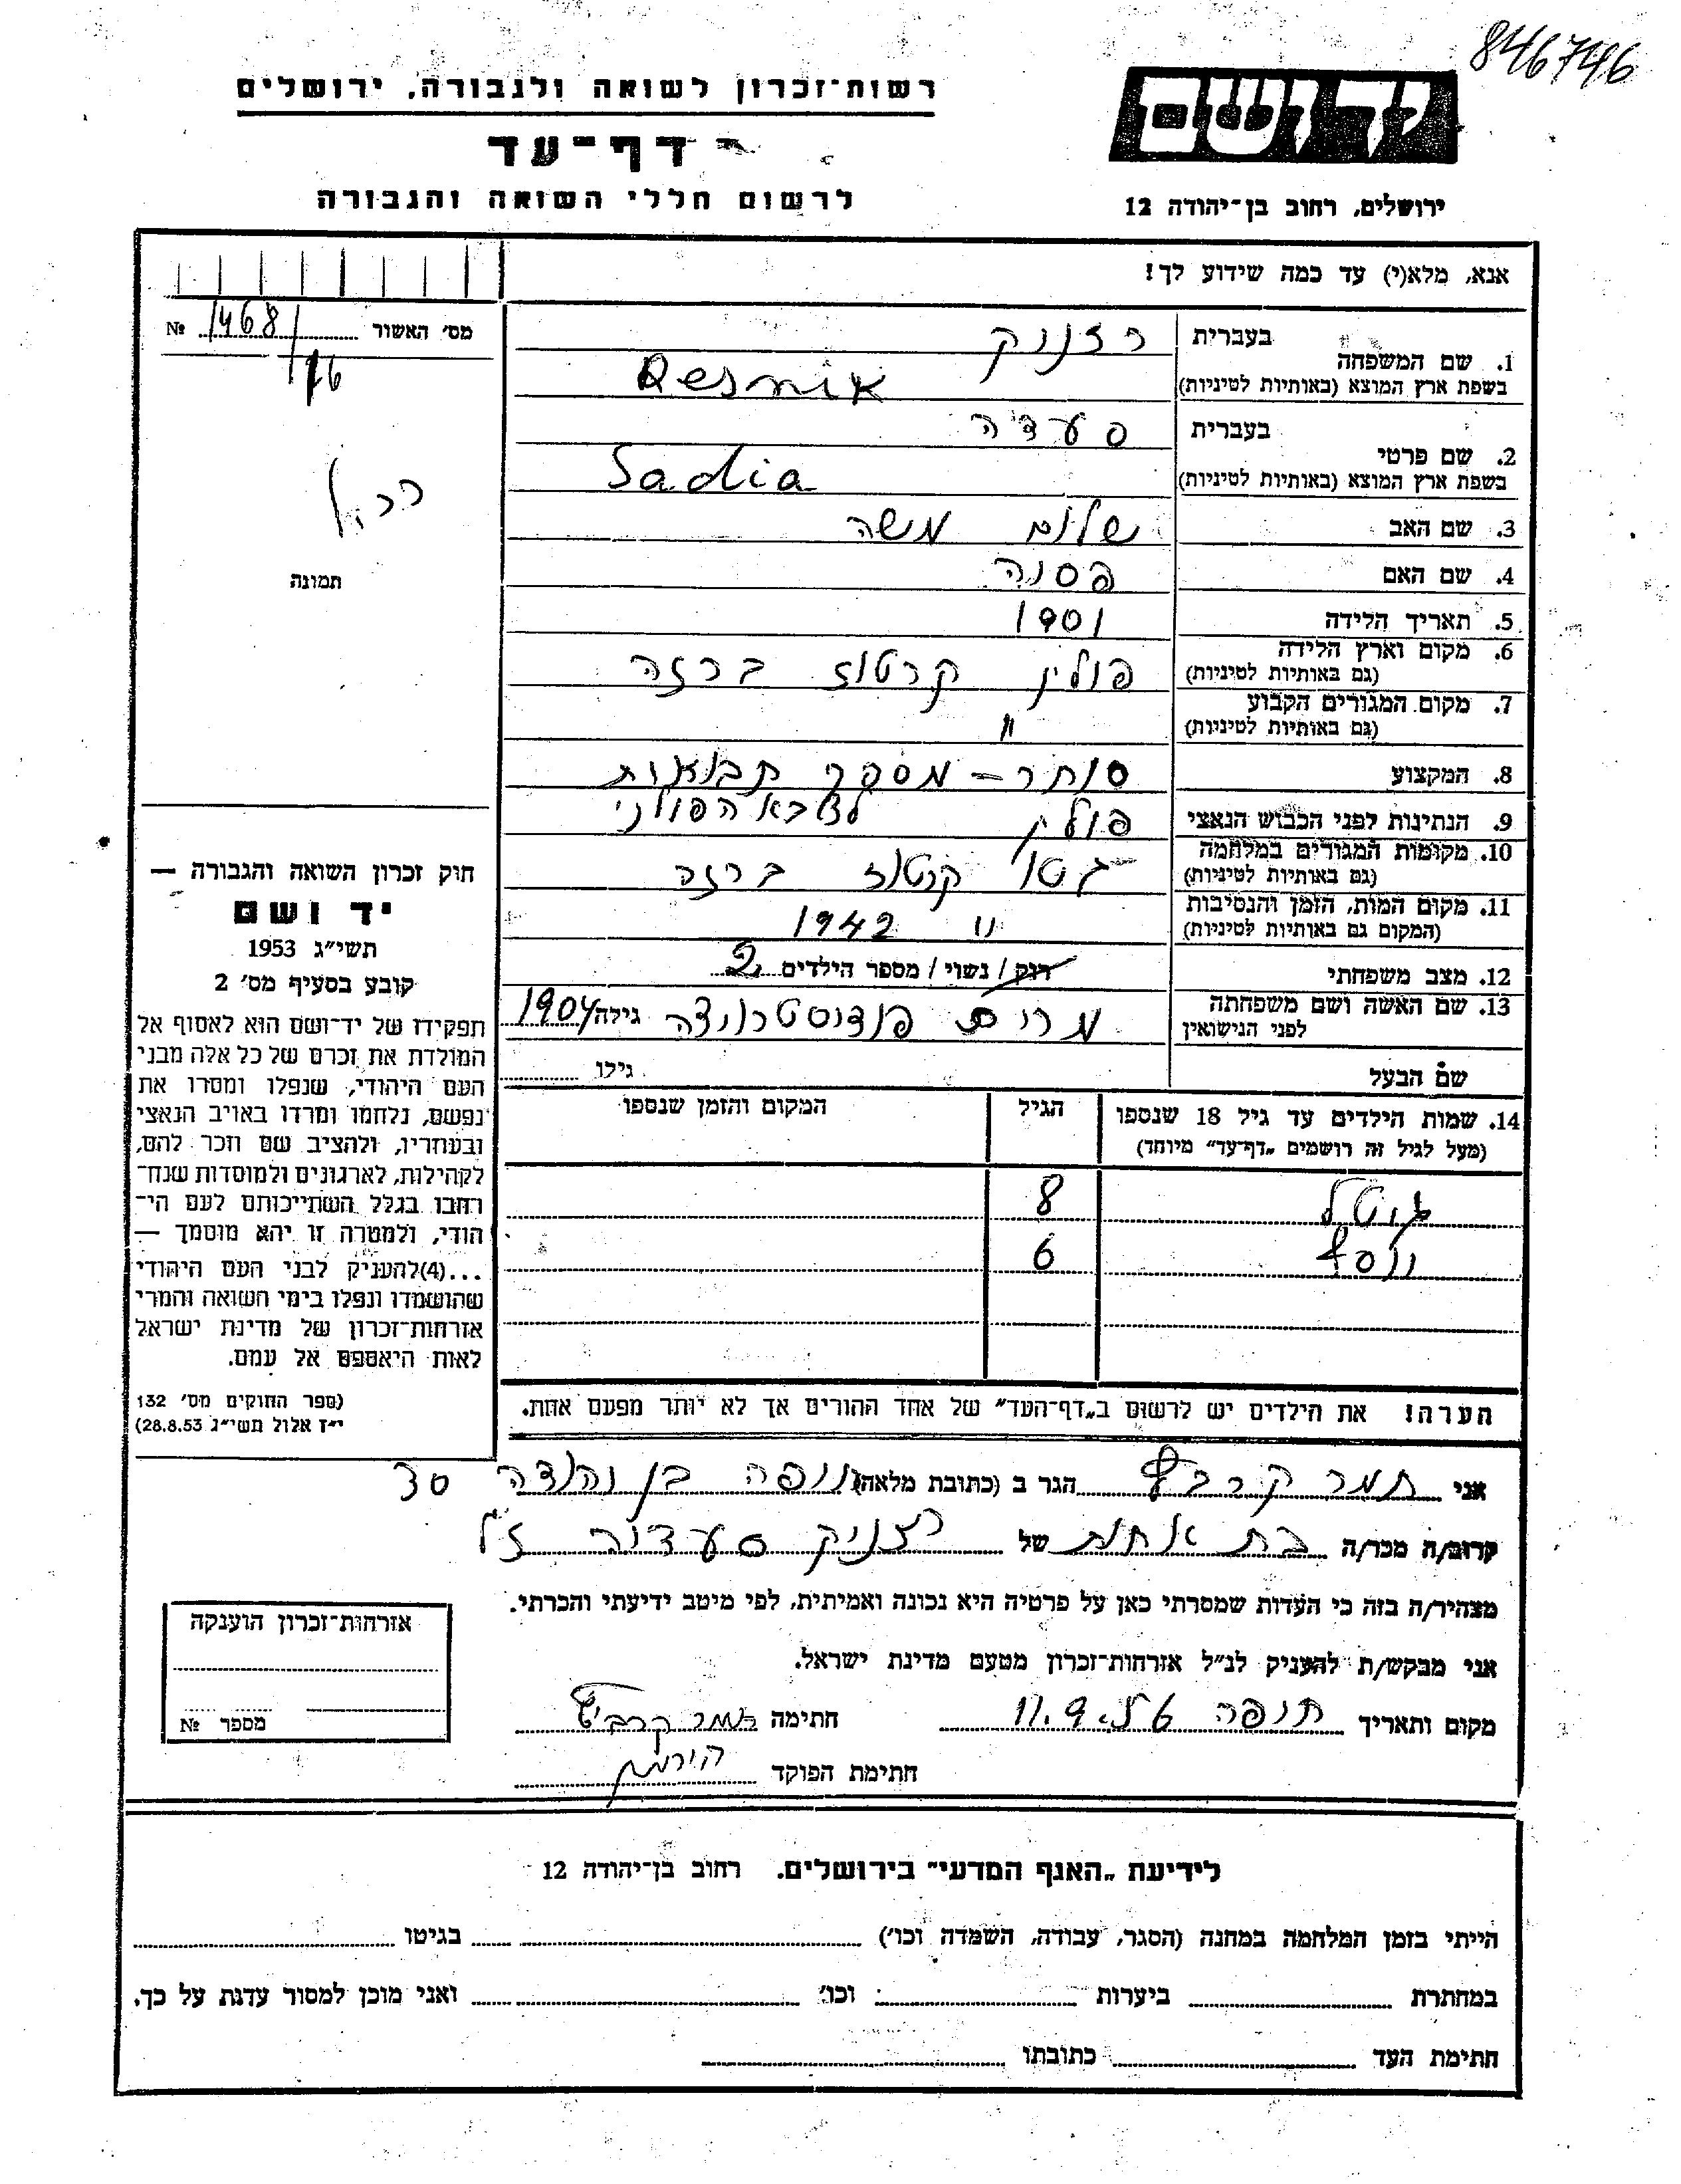 846746
רשות־זכרון לשואה ולגבורה, ירושלים
יד ושם
דף־עד
לרשום חללי השואה והגבורה
ירושלים, רחוב בן־יהודה 12
אנא, מלא(י) עד כמה שידוע לך!
מס׳ האשור № 1468/76
1. שם המשפחה
בעברית רזניק
בשפת ארץ המוצא (באותיות לטיניות) Resnik
2. שם פרטי
בעברית סעדיה
בשפת ארץ המוצא (באותיות לטיניות) Sadia
3. שם האב שלום משה
4. שם האם פסיה
תמונה
5. תאריך הלידה 1901
6. מקום וארץ הלידה פולין קרטוז ברזה
(גם באותיות לטיניות)
7. מקום המגורים הקבוע "
(גם באותיות לטיניות)
8. המקצוע סוחר – מספק תבואות
לצבא הפולני
9. הנתינות לפני הכבוש הנאצי פולין
10. מקומות המגורים במלחמה גטו קרטוז ברזה
(גם באותיות לטיניות)
11. מקום המות, הזמן והנסיבות " 1942
(המקום גם באותיות לטיניות)
12. מצב משפחתי רווק / נשוי / מספר הילדים 2
13. שם האשה ושם משפחתה מרים גילה 1904
לפני הנישואין
שם הבעל גילו
14. שמות הילדים עד גיל 18 שנספו הגיל המקום והזמן שנספו
(מעל לגיל זה רושמים „דף־עד” מיוחד)
גיטל 8
יוסף 6
הערה! את הילדים יש לרשום ב„דף־העד” של אחד ההורים אך לא יותר מפעם אחת.
חוק זכרון השואה והגבורה —
יד ושם
תשי״ג 1953
קובע בסעיף מס׳ 2
תפקידו של יד־ושם הוא לאסוף אל
המולדת את זכרם של כל אלה מבני
העם היהודי, שנפלו ומסרו את
נפשם, נלחמו ומרדו באויב הנאצי
ובעוזריו, ולהציב שם וזכר להם,
לקהילות, לארגונים ולמוסדות שנח־
רבו בגלל השתייכותם לעם הי־
הודי, ולמטרה זו יהא מוסמך —
...(4)להעניק לבני העם היהודי
שהושמדו ונפלו בימי השואה והמרי
אזרחות־זכרון של מדינת ישראל
לאות היאספם אל עמם.
(ספר החוקים מס׳ 132
י״ז אלול תשי״ג 28.8.53)
אני תמר קרביץ הגר ב (כתובת מלאה) חיפה בן יהודה 30
קרוב/ה מכר/ה בת אחות של רזניק סעדיה ז״ל
מצהיר/ה בזה כי העדות שמסרתי כאן על פרטיה היא נכונה ואמיתית, לפי מיטב ידיעתי והכרתי.
אני מבקש/ת להעניק לנ״ל אזרחות־זכרון מטעם מדינת ישראל.
מקום ותאריך חיפה 11.9. חתימה תמר קרביץ
חתימת הפוקד
אזרחות־זכרון הוענקה
מספר №
לידיעת „האגף המדעי” בירושלים. רחוב בן־יהודה 12
הייתי בזמן המלחמה במחנה (הסגר, עבודה, השמדה וכו׳) בגיטו
במחתרת ביערות וכו׳ ואני מוכן למסור עדות על כך.
חתימת העד כתובתו